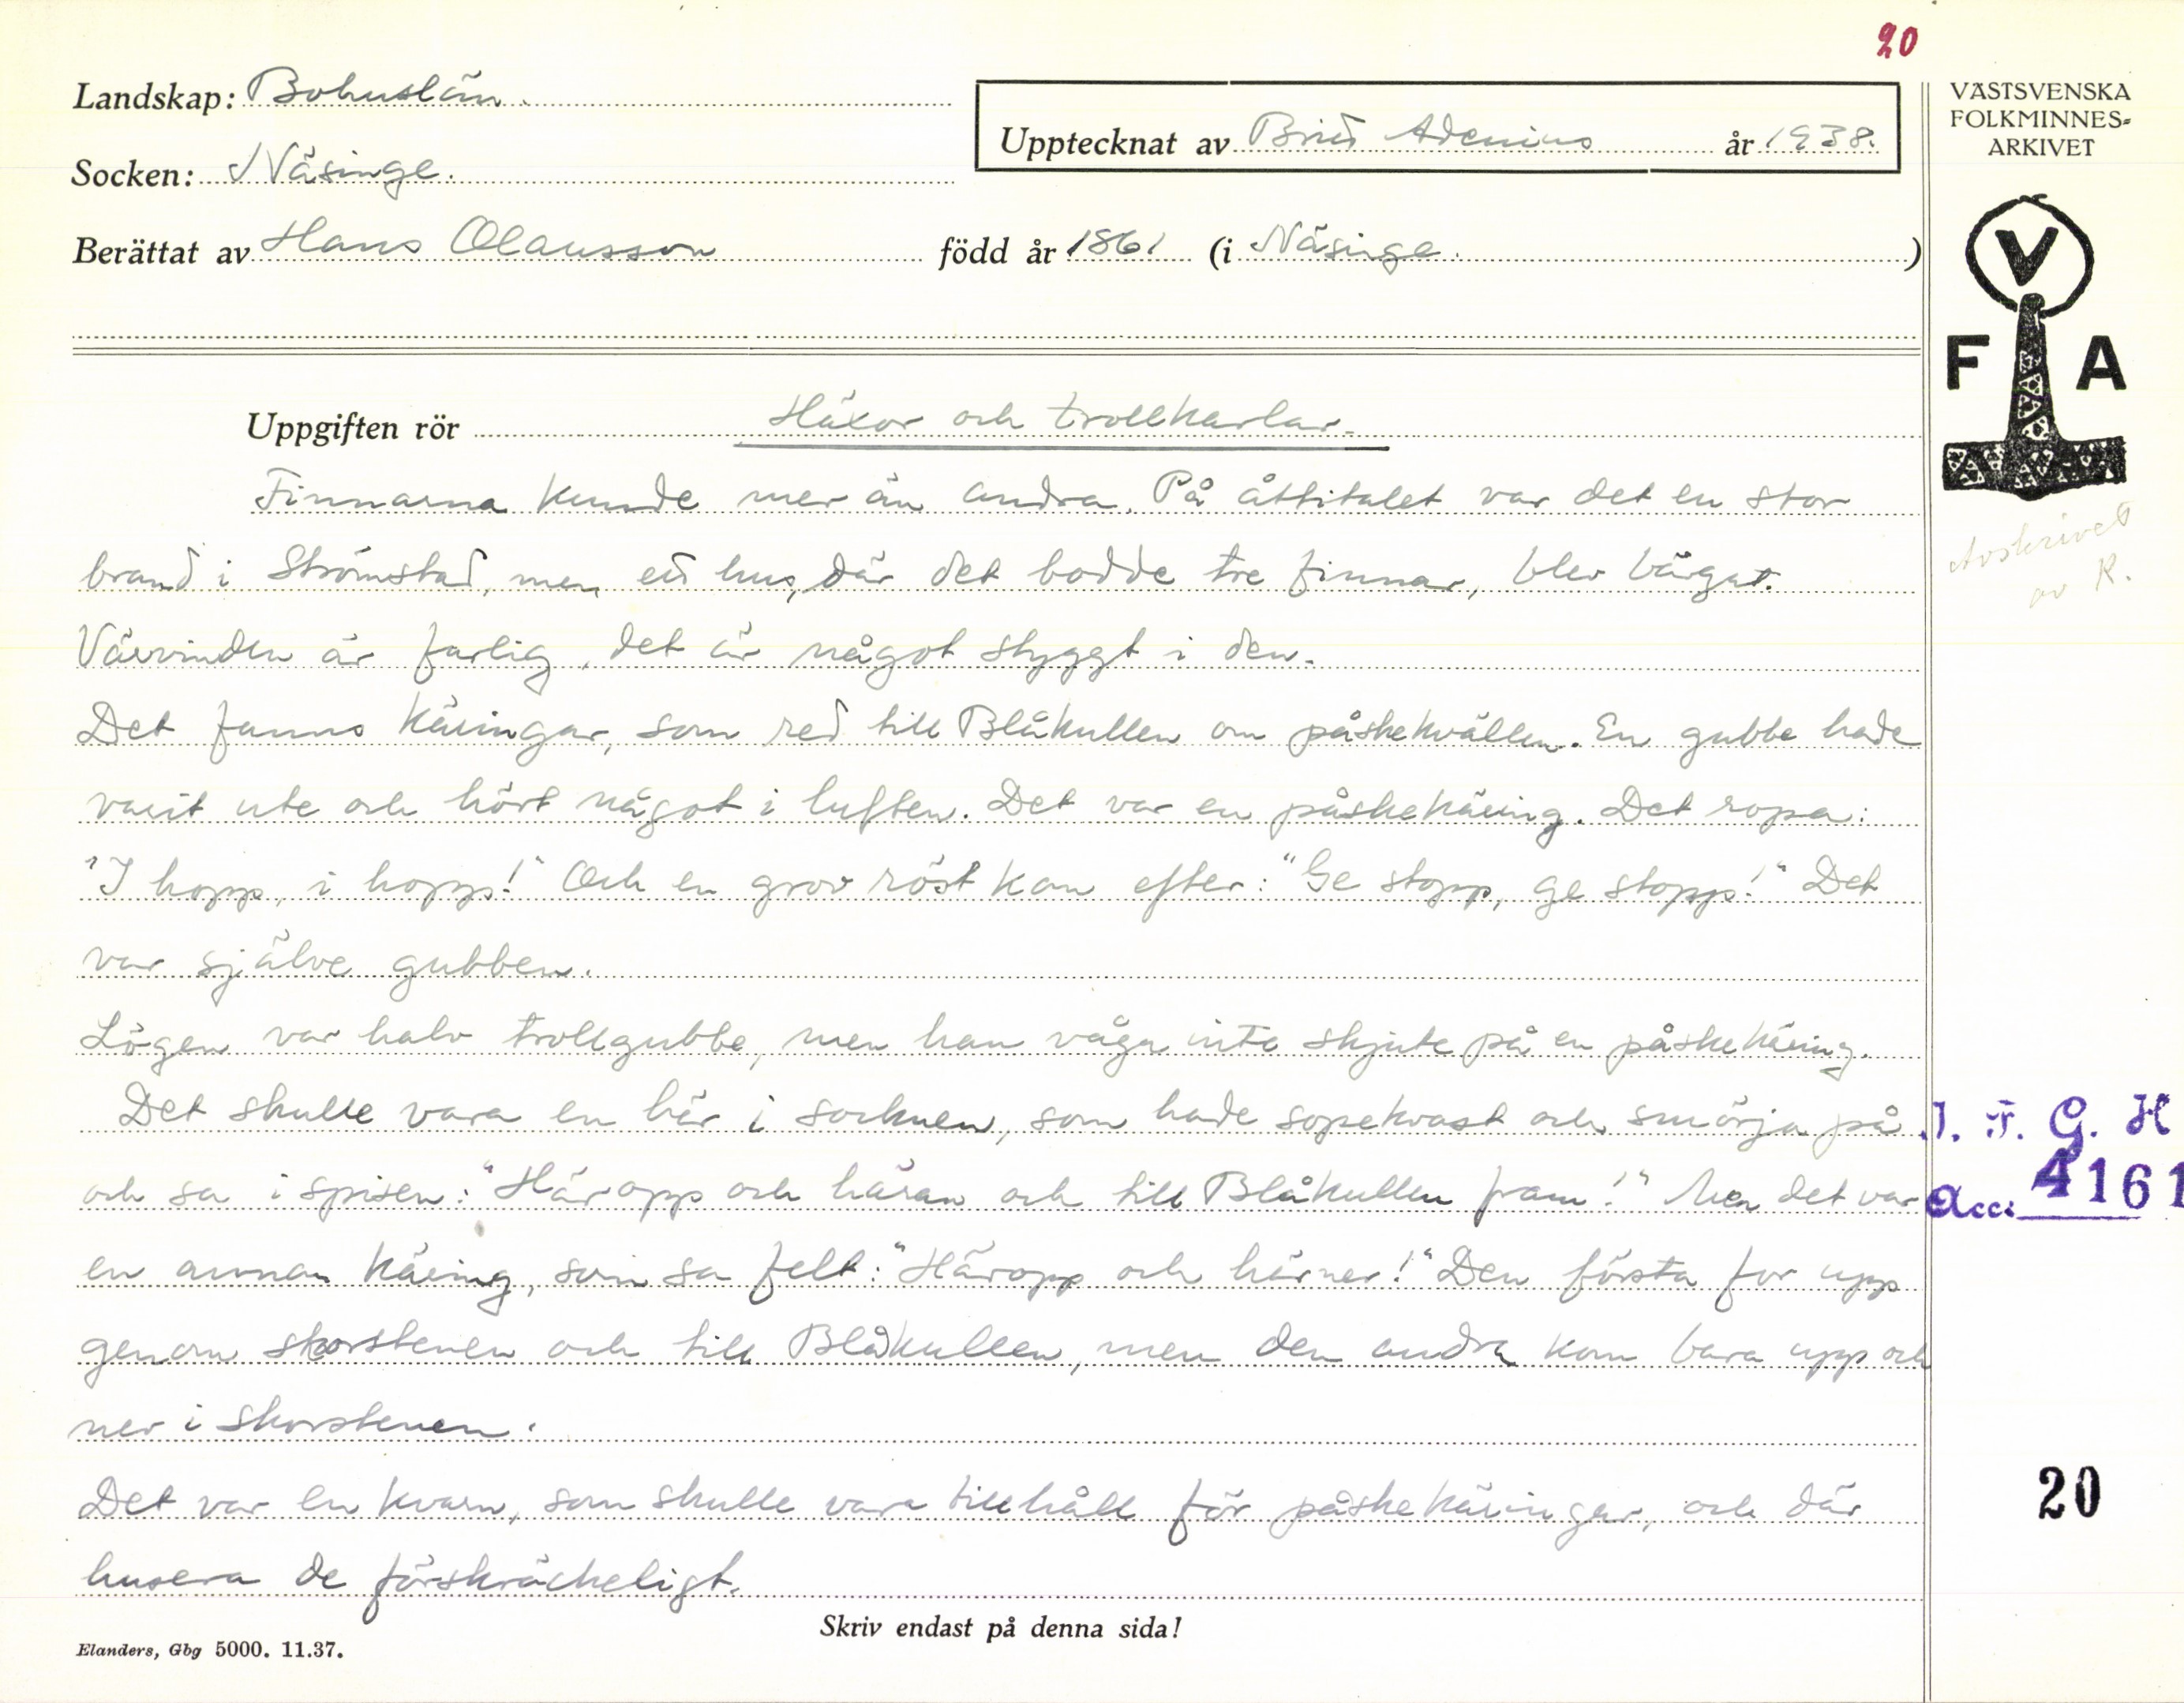 20
Landskap: Bohuslän.
Upptecknat av Brita Adenius år 1938.
Socken: Näsinge.
Berättat av Hans Olausson född år 1861 (i Näsinge.)
VÄSTSVENSKA
FOLKMINNES-
ARKIVET
V
F A
Uppgiften rör Häxor och trollkarlar.
Finnarna kunde mer än andra. På åttitalet var det en stor
brand i Strömstad, men ett hus, där det bodde tre finnar, blev bärgat.
Avskrivet
av R.
Värvinden är farlig, det är något styggt i den.
Det fanns käringar, som red till Blåkullen om påskekvällen. En gubbe hade
varit ute och hört något i luften. Det var en påskekäring. Det ropa:
"I hopp, i hopp!" Och en grov röst kom efter: "Ge stopp, ge stopp!" Det
var själve gubben.
Lögen var halv trollgubbe, men han våga inte skjute på en påskekäring.
Det skulle vara en här i socknen, som hade sopekvast och smörja på
och sa i spisen: "Häropp och häran och till Blåkullen fram!" Men det var
en annan käring, som sa felt: "Häropp och härner!" Den första for upp
genom skorstenen och till Blåkullen, men den andra kom bara upp och
ner i skorstenen.
Det var en kvarn, som skulle vara tillhåll för påskekäringar, och där
husera de förskräckeligt.
I. F. G. H
Acc. 4161
20
Skriv endast på denna sida!
Elanders, Gbg 5000. 11.37.